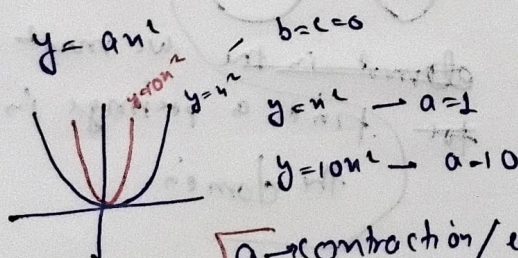 y = ax²
b=c=0
y=10x²
y=x²
y=x² → a=1
y=10x² → a=10
a→contraction/e